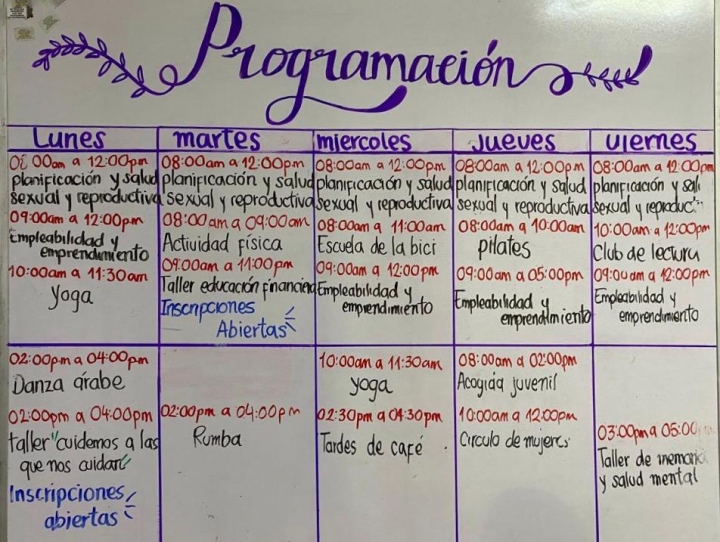 Programación
Lunes
martes
miercoles
jueves
viernes
00am a 12:00pm
planificación y salud
sexual y reproductiva
09:00am a 12:00pm
Empleabilidad y
emprendimiento
10:00am a 11:30am
yoga
08:00am a 12:00pm
planificación y salud
sexual y reproductiva
08:00am a 09:00am
Actividad física
09:00am a 11:00pm
Taller educación financiera
Inscripciones
Abiertas
08:00am a 12:00pm
planificación y salud
sexual y reproductiva
08:00am a 11:00am
Escuela de la bici
09:00am a 12:00pm
Empleabilidad y
emprendimiento
08:00am a 12:00pm
planificación y salud
sexual y reproductiva
08:00am a 10:00am
pilates
09:00am a 05:00pm
Empleabilidad y
emprendimiento
08:00am a 12:00pm
planificación y
sexual y
10:00am a 12:00pm
Club de lectura
09:00am a 12:00pm
Empleabilidad y
emprendimiento
02:00pm a 04:00pm
Danza árabe
02:00pm a 04:00pm
taller "cuidemos a las
que nos cuidan"
Inscripciones
abiertas
02:00pm a 04:00pm
Rumba
10:00am a 11:30am
yoga
02:30pm a 04:30pm
Tardes de café .
08:00am a 02:00pm
Acogida juvenil
10:00am a 12:00pm
Circulo de mujeres
03:00pm a 05:00
Taller de memoria
y salud mental